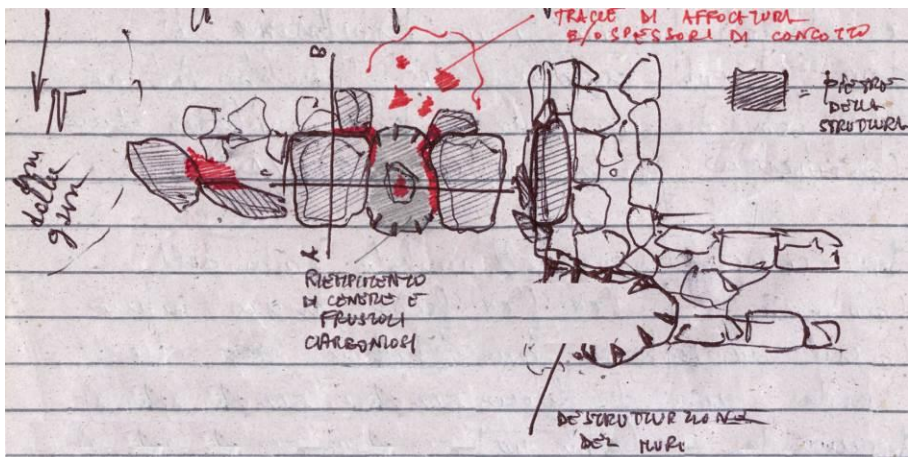 TRACCE DI AFFOCATURA
E/O SPESSORI DI CONCOTTO
B
N
= PIETRE
DELLA
STRUTTURA
dalla
A
RIEMPIMENTO
DI CENERE E
FRUSTOLI
CARBONIOSI
DESTRUTTURAZIONE
DEL MURO